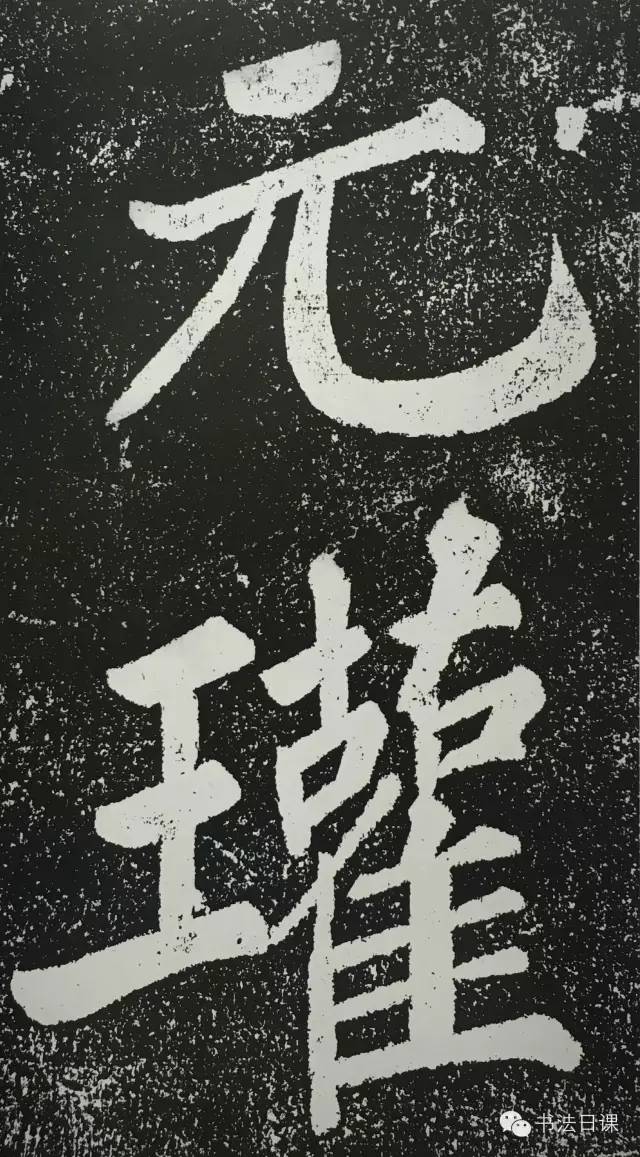 元
瓘
书法日课